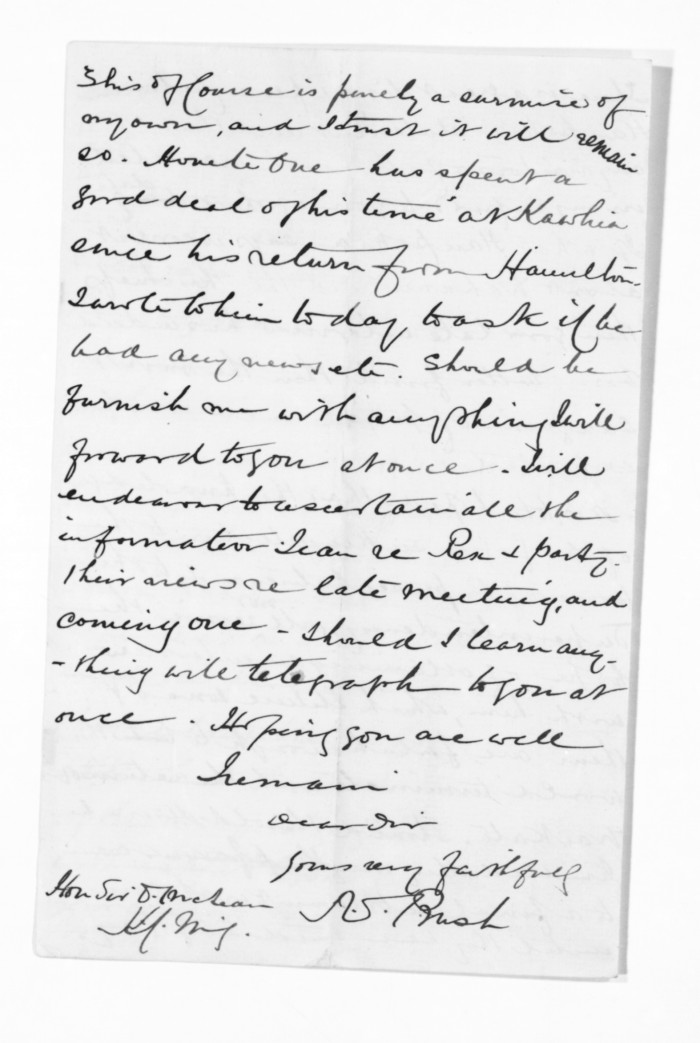 This of Course is purely a surmise of
my own, and I trust it will remain
so. Honete One has spent a
good deal of his time at Kawhia
since his return from Hamilton.
I wrote to him to day to ask if he
had any news etc. Should he
furnish me with anything I will
forward to you at once. I will
endeavour to ascertain all the
information I can re Rex & party.
Their news re late meeting, and
coming one - Should I learn any-
-thing will telegraph to you at
once. Hoping you are well
I remain
dear Sir
yours very faithfully
R.S. Bush
Hon Sir D. McLean